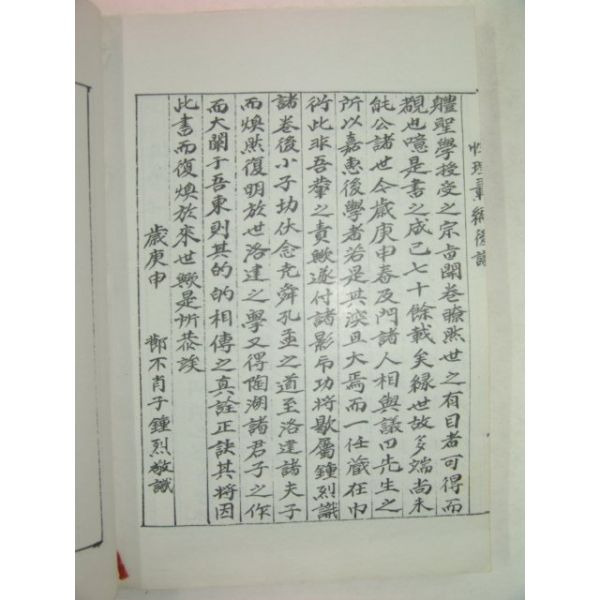 性理彙編後識
體聖學授受之宗旨開卷瞭然世之有目者可得而
覩也噫是書之成已七十餘載矣緣世故多端尚未
能公諸世今歲庚申春及門諸人相與議曰先生之
所以嘉惠後學者若是其深且大焉而一任藏在巾
衍此非吾輩之責歟遂付諸影印功將歇屬鍾烈識
諸卷後小子功伏念堯舜孔孟之道至洛建諸夫子
而煥然復明於世洛建之學又得陶湖諸君子之作
而大闡于吾東則其的的相傳之真詮正訣其將因
此書而復煥於來世歟是所恭俟
歲庚申 不肖子鍾烈敬識